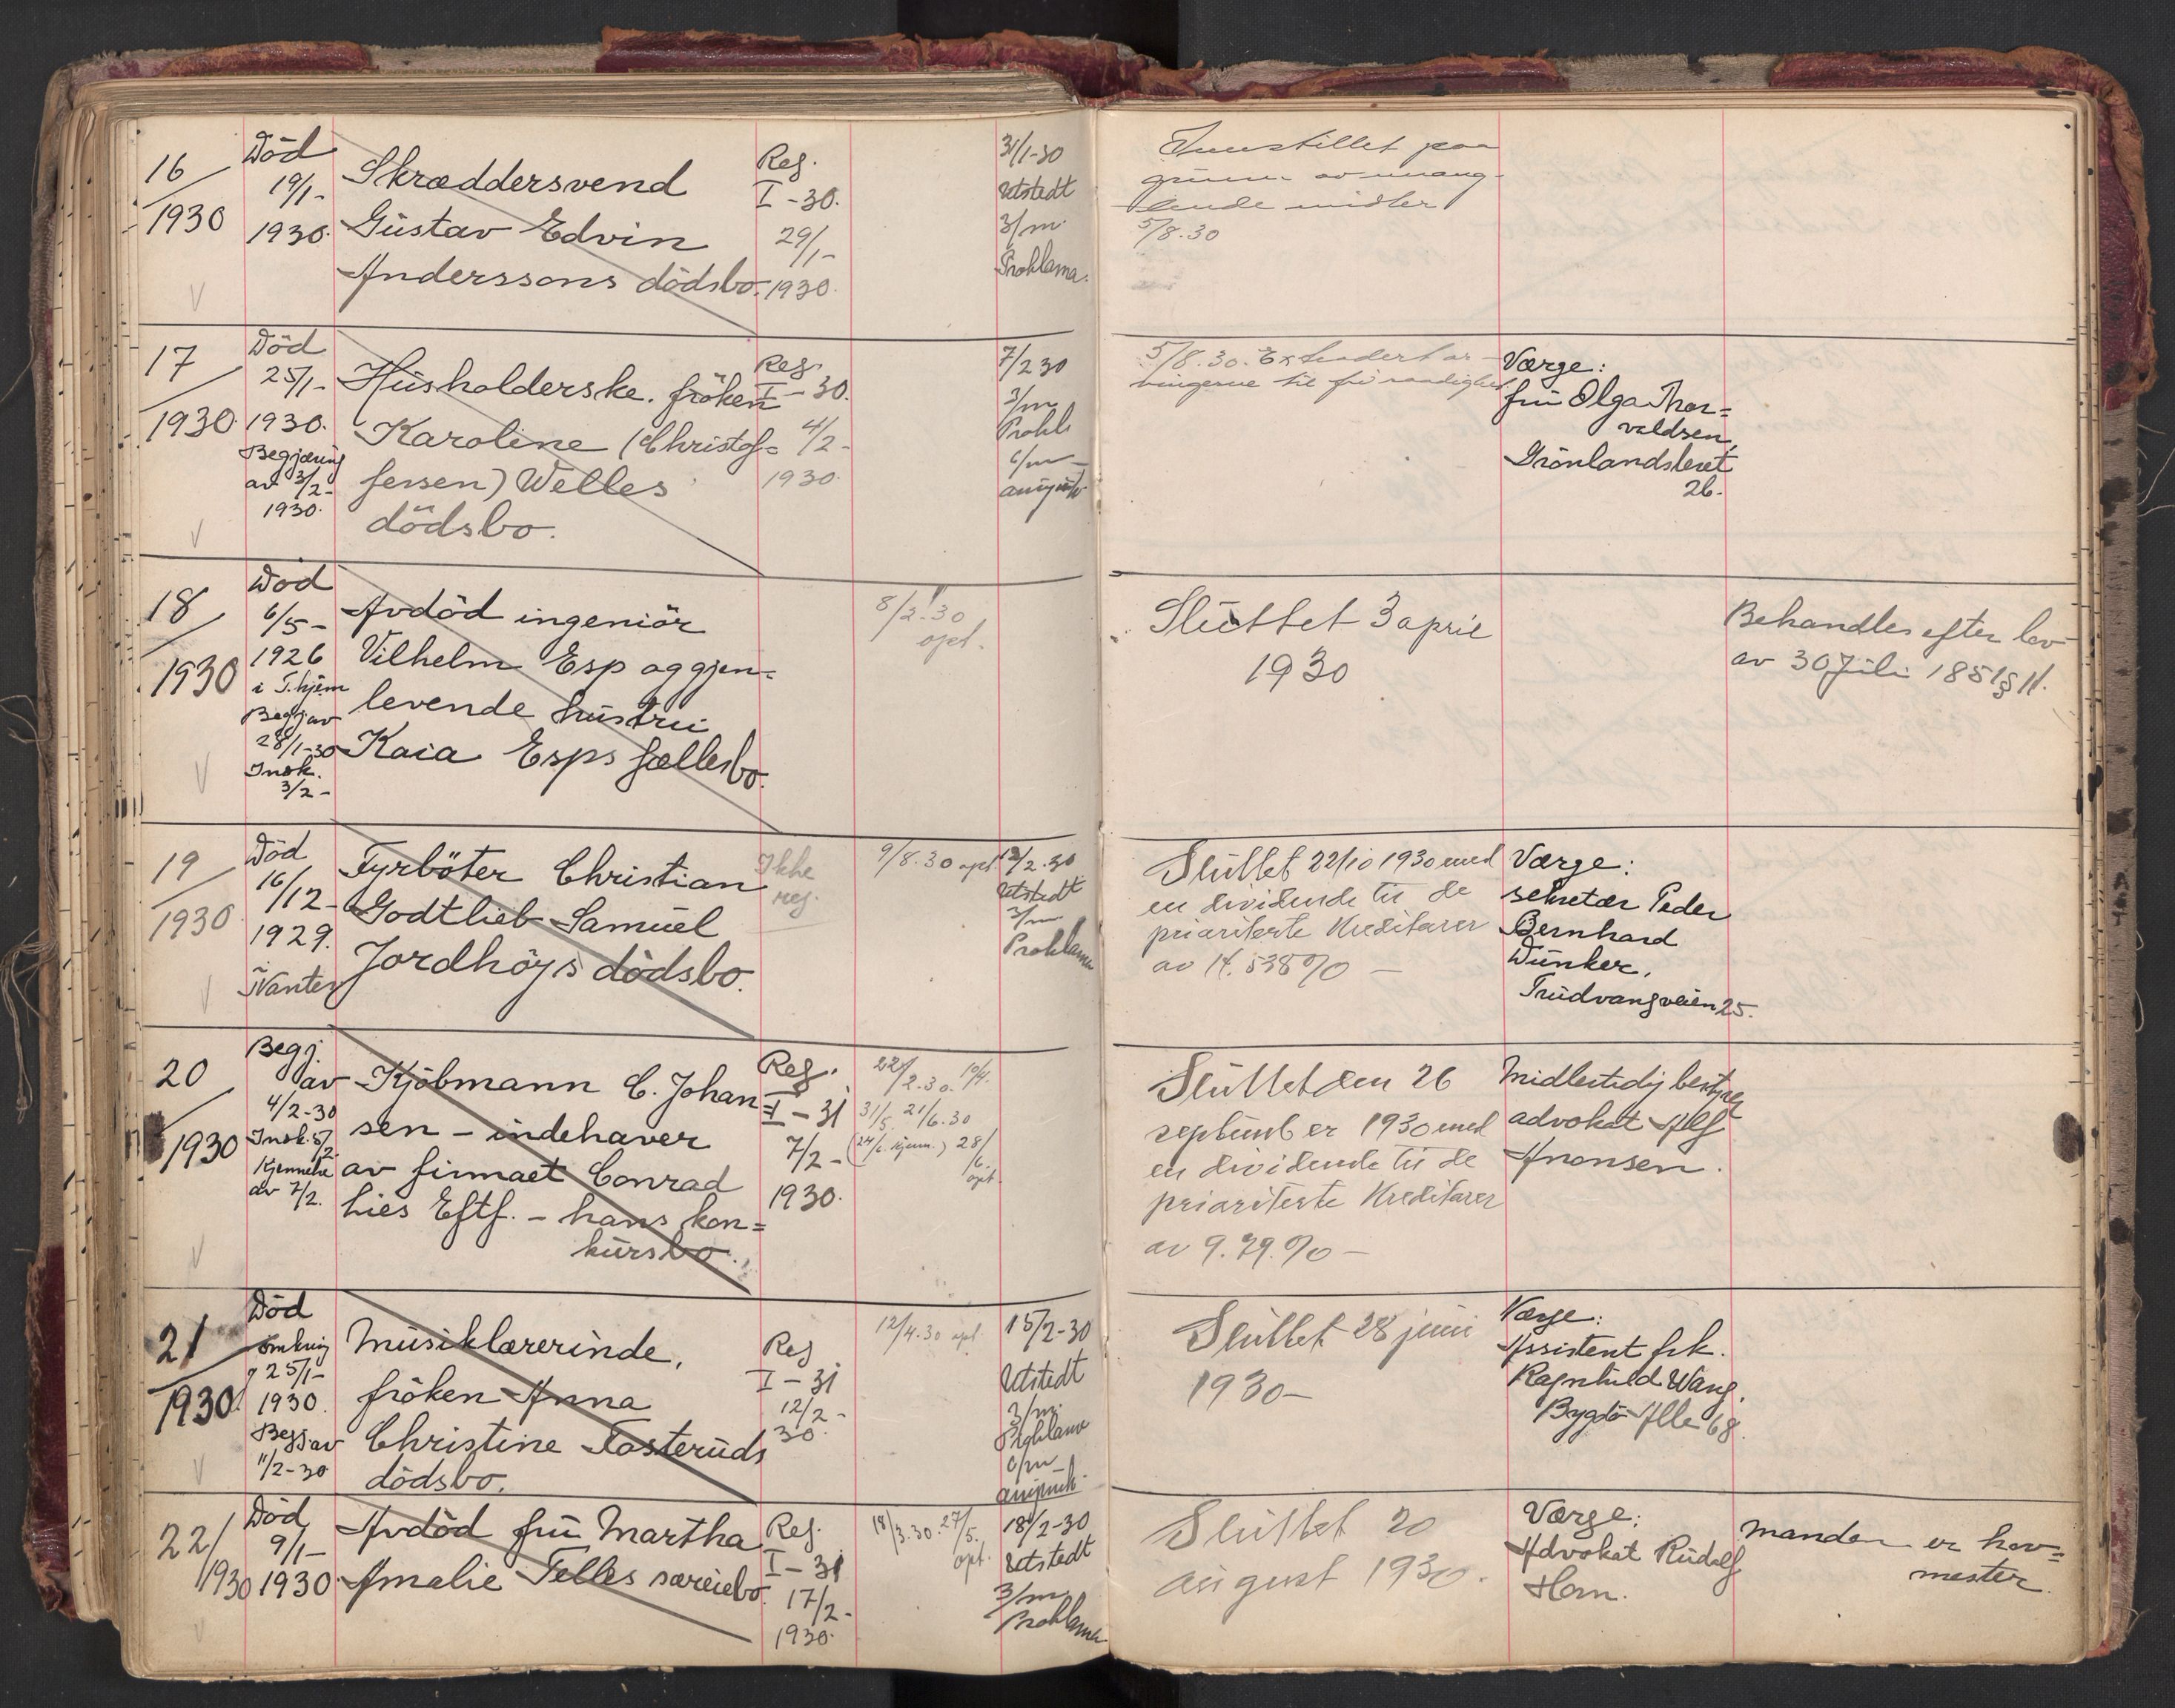 16
1930
Död
19/1-
1930.
Skræddersvend
Gustav Edvin
Anderssons dödsbo.
Reg.
I-30.
29/1-
1930.
31/1-30
Utstedt
3/m.
Proklama.
Innstillet paa
grunn av mang-
lende midler
5/8.30
17
1930.
Död
25/1-
1930.
Begjæring
av 3/2-
1930.
Husholderske. fröken
Karoline (Christof=
fersen) Welles
dödsbo.
Reg.
I-30.
4/2-
1930.
7/2 30
3/m
Prokl.
6/m
5/8.30. Extradert ar-
vingerne til fri raadighet
Værge:
fru Olga Thor=
valdsen,
Grönlandsleret
26.
18
1930
Död
6/5-
1926
i T.hjem
Begj av
28/1-30
Insk.
3/2-
Avdöd ingeniör
Vilhelm Esp og gjen=
levende hustru
Kaia Esps fællesbo.
8/2.30
opt.
Sluttet 3 april
1930
Behandles efter lov
av 30 Juli 1851 § 11.
19
1930
Död
16/12-
1929.
i Nantes
Fyrböter Christian
Godtlieb Samuel
Jordhöys dödsbo.
Ikke
reg.
9/8.30 opt.
12/2.30
Utstedt
3/m
Proklama
Sluttet 22/10 1930 med
en dividende til de
prioriterte Kreditorer
av 14.538 % –
Værge:
sekretær Peder
Bernhard
Dunker,
Trudvangveien 25.
20
1930
Begj.
av
4/2-30
Insk. 5/2
Kjennelse
av 7/2.
Kjöbmann C. Johan=
sen – indehaver
av firmaet Conrad
Lies Eftf. – hans kon=
kursbo.
Reg.
I-31
7/2-
1930.
22/2.30. 10/4.
31/5. 21/6.30
28/6.
opt.
Sluttet den 26
september 1930 med
en dividende til de
prioriterte Kreditorer
av 9.79.% –
Midlertidig bestyrer
advokat Alf
Aronsen.
21
1930.
Död
omkring
25/1-
1930.
Begj av
11/2-30
Musiklærerinde,
fröken Anna
Christine Fosteruds
dödsbo.
Reg
I-31
12/2-
30.
12/4.30 opt.
15/2-30
Utstedt
3/m.
Proklama
6/m
Sluttet 28 juni
1930–
Værge:
Assistent frk.
Ragnhild Wang.
Bygdö Alle 68.
22/
1930
Död
9/1-
1930.
Avdöd fru Martha
Amalie Telles særeiebo.
Reg.
I-31
17/2-
1930.
18/3.30. 27/5.
opt.
18/2-30
Utstedt
3/m
Proklama
Sluttet 20
august 1930.
Værge:
Advokat Rudolf
Horn.
Manden er hov=
mester.